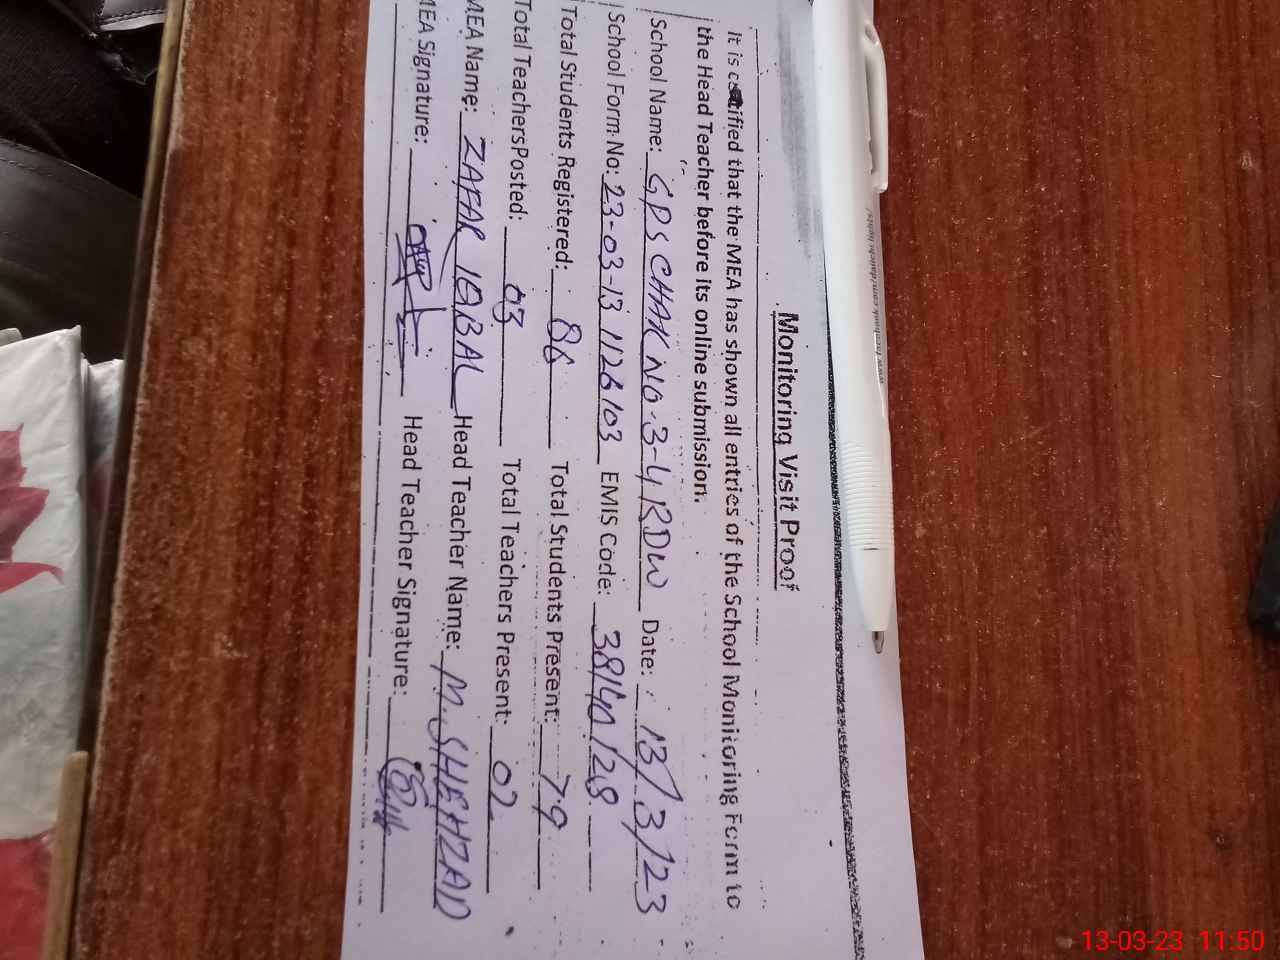 Monitoring Visit Proof
It is certified that the MEA has shown all entries of the School Monitoring Form to
the Head Teacher before its online submission.
School Name: GPS CHAK NO-3-4 RDW Date: 13/3/23
School Form No: 23-03-13 1126103 EMIS Code: 38140128
Total Students Registered: 86 Total Students Present: 79
Total TeachersPosted: 03 Total Teachers Present: 02
MEA Name: ZAFAR IQBAL Head Teacher Name: M. SHEHZAD
MEA Signature: Head Teacher Signature:
13-03-23 11:50